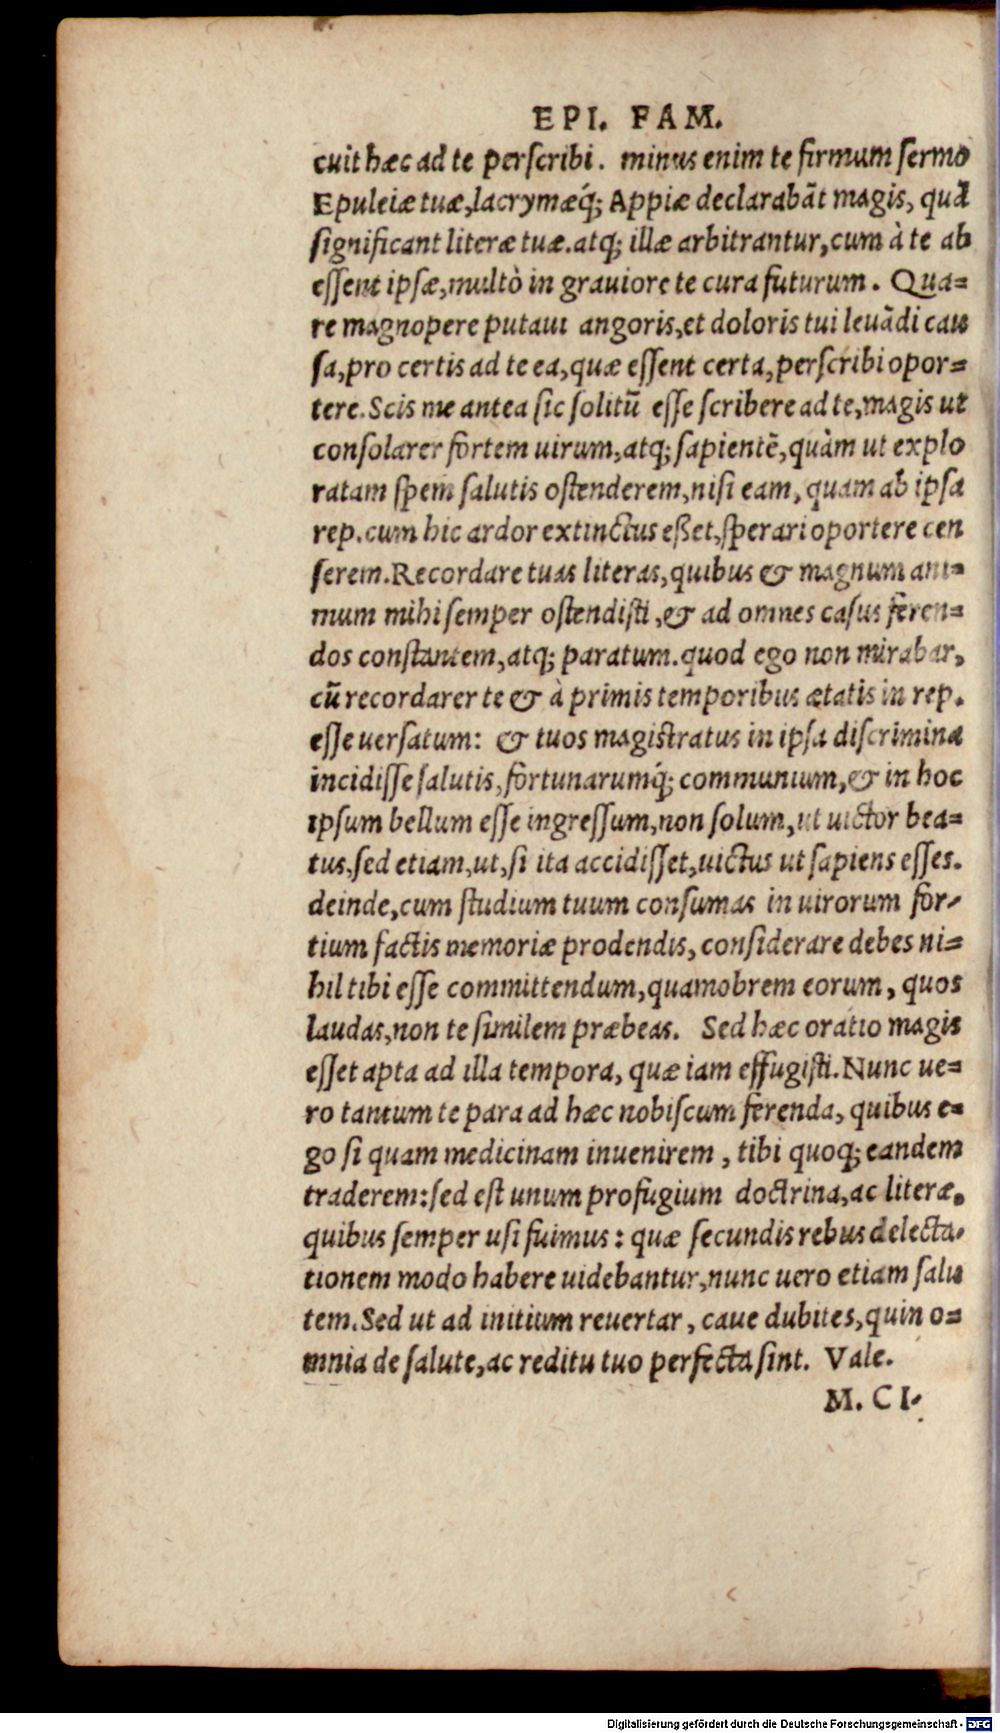 EPI. FAM.
cuit hæc ad te perſcribi. minus enim te firmum ſermo
Epuleiæ tuæ, lacrymæq́; Appiæ declarabãt magis, quã
ſignificant literæ tuæ. atq; illæ arbitrantur, cum à te ab
eſſent ipſæ, multò in grauiore te cura futurum. Qua=
re magnopere putaui angoris, et doloris tui leuãdi cau
ſa, pro certis ad te ea, quæ eſſent certa, perſcribi opor=
tere. Scis me antea ſic ſolitũ eſſe ſcribere ad te, magis ut
conſolarer fortem uirum, atq; ſapientẽ, quàm ut explo
ratam ſpem ſalutis oſtenderem, niſi eam, quam ab ipſa
rep. cum hic ardor extinctus eßet, ſperari oportere cen
ſerem. Recordare tuas literas, quibus & magnum ani=
mum mihi ſemper oſtendiſti, & ad omnes caſus feren=
dos conſtantem, atq; paratum. quod ego non mirabar,
cũ recordarer te & à primis temporibus ætatis in rep.
eſſe uerſatum: & tuos magiſtratus in ipſa diſcrimina
incidiſſe ſalutis, fortunarumq́; communium, & in hoc
ipſum bellum eſſe ingreſſum, non ſolum, ut uictor bea=
tus, ſed etiam, ut, ſi ita accidiſſet, uictus ut ſapiens eſſes.
deinde, cum ſtudium tuum conſumas in uirorum for-
tium factis memoriæ prodendis, conſiderare debes ni=
hil tibi eſſe committendum, quamobrem eorum, quos
laudas, non te ſimilem præbeas. Sed hæc oratio magis
eſſet apta ad illa tempora, quæ iam effugiſti. Nunc ue=
ro tantum te para ad hæc nobiſcum ferenda, quibus e=
go ſi quam medicinam inuenirem, tibi quoq; eandem
traderem: ſed eſt unum profugium doctrina, ac literæ.
quibus ſemper uſi fuimus: quæ ſecundis rebus delecta-
tionem modo habere uidebantur, nunc uero etiam ſalu
tem. Sed ut ad initium reuertar, caue dubites, quin o=
mnia de ſalute, ac reditu tuo perfecta ſint. Vale.
M. CI.
Digitalisierung gefördert durch die Deutsche Forschungsgemeinschaft - DFG